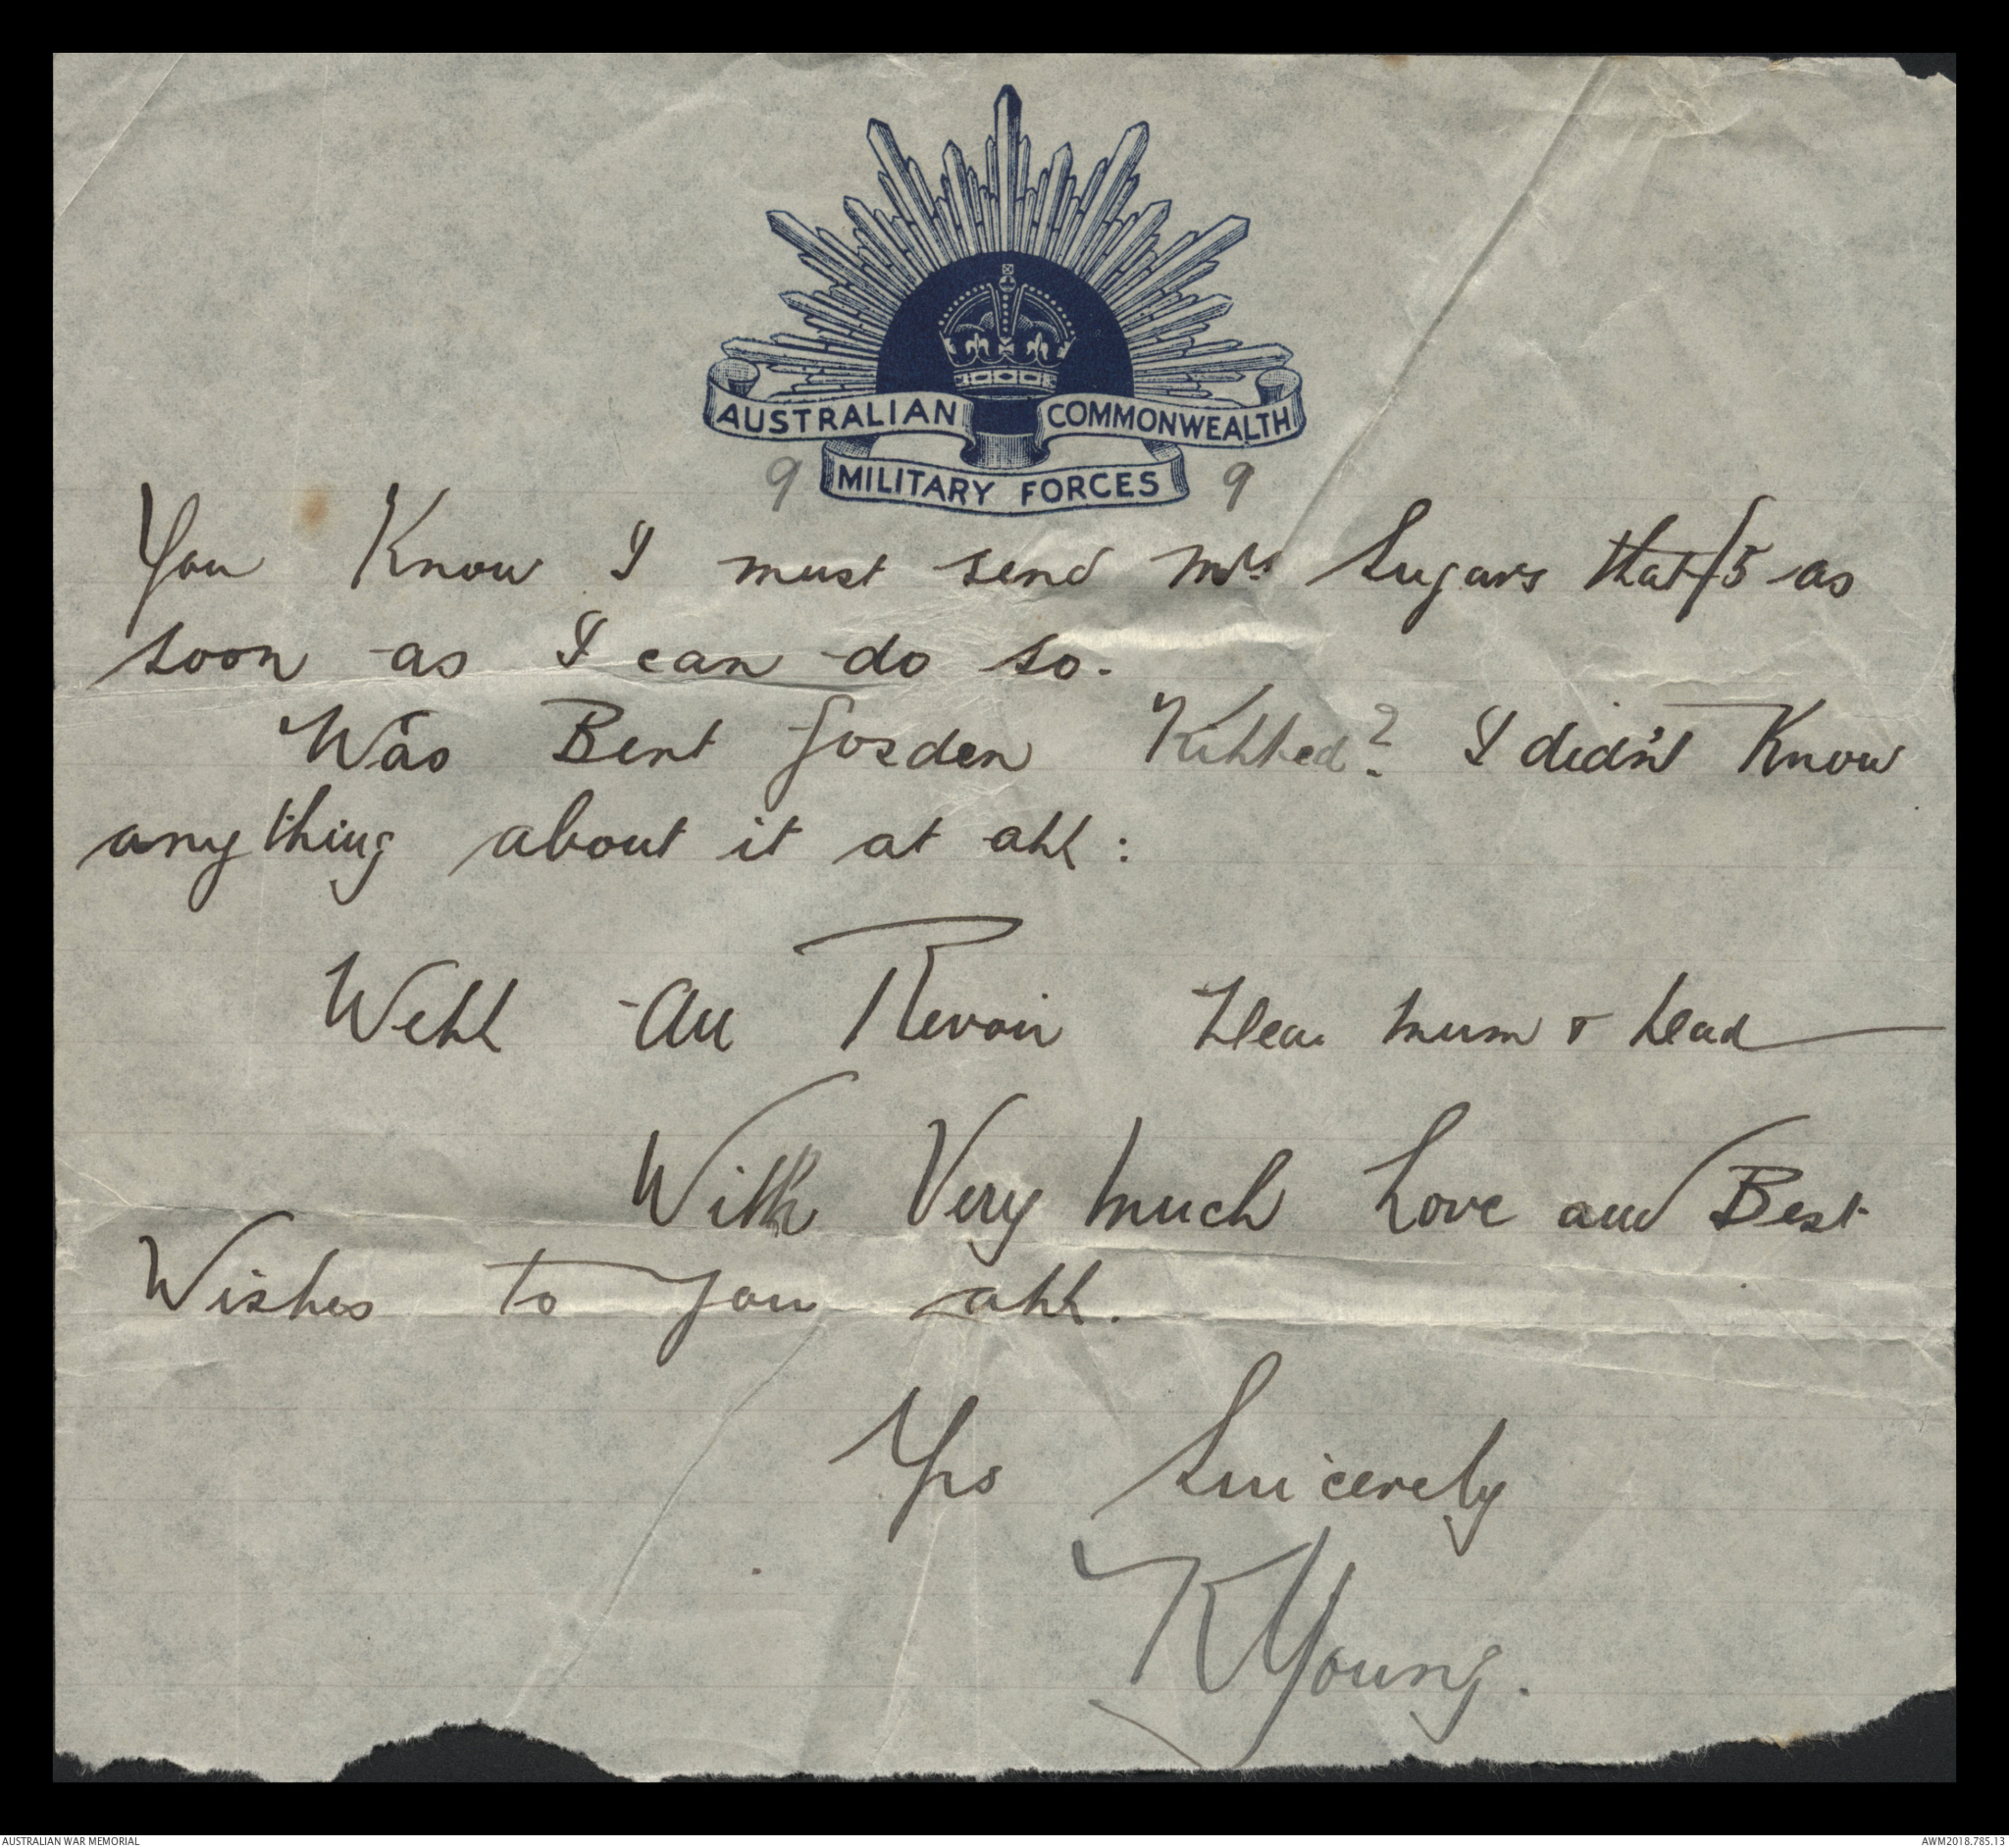 AUSTRALIAN COMMONWEALTH
9 MILITARY FORCES 9
You Know I must send Mrs Sugars that £5 as
soon as I can do so.
Was Bert Josden Killed? I didn't Know
anything about it at all:
Well Au Revoir Dear Mum & Dad
With Very much Love and Best
Wishes to you all.
Yrs Sincerely
KYoung.
AUSTRALIAN WAR MEMORIAL AWM2018.785.13